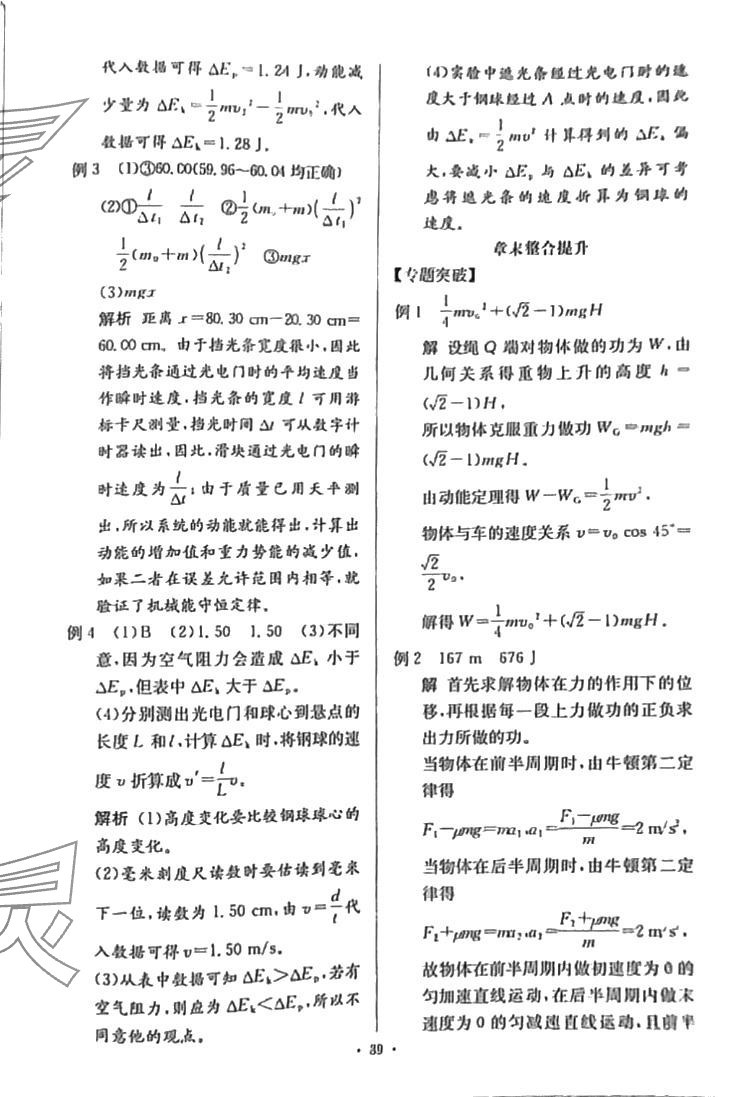 代入数据可得 ΔEₚ=1.24 J,动能减
少量为 ΔEₖ=\frac{1}{2}mv₂²-\frac{1}{2}mv₁²,代入
数据可得 ΔEₖ=1.28 J。
例3 (1)③60.00(59.96~60.04 均正确)
(2)①\frac{l}{Δt₁} \frac{l}{Δt₂} ②\frac{1}{2}(m₀+m)(\frac{l}{Δt₁})²
\frac{1}{2}(m₀+m)(\frac{l}{Δt₂})² ③mgx
(3)mgx
解析 距离 x=80.30 cm-20.30 cm=
60.00 cm。由于挡光条宽度很小,因此
将挡光条通过光电门时的平均速度当
作瞬时速度,挡光条的宽度 l 可用游
标卡尺测量,挡光时间 Δt 可从数字计
时器读出,因此,滑块通过光电门的瞬
时速度为\frac{l}{Δt};由于质量已用天平测
出,所以系统的动能就能得出,计算出
动能的增加值和重力势能的减少值,
如果二者在误差允许范围内相等,就
验证了机械能守恒定律。
例4 (1)B (2)1.50 1.50 (3)不同
意,因为空气阻力会造成 ΔEₖ 小于
ΔEₚ,但表中 ΔEₖ 大于 ΔEₚ。
(4)分别测出光电门和球心到悬点的
长度 L 和 l,计算 ΔEₖ 时,将钢球的速
度 v 折算成 v′=\frac{l}{L}v。
解析 (1)高度变化要比较钢球球心的
高度变化。
(2)毫米刻度尺读数时要估读到毫米
下一位,读数为 1.50 cm,由 v=\frac{d}{t}代
入数据可得 v=1.50 m/s。
(3)从表中数据可知 ΔEₖ>ΔEₚ,若有
空气阻力,则应为 ΔEₖ<ΔEₚ,所以不
同意他的观点。
(4)实验中遮光条经过光电门时的速
度大于钢球经过 A 点时的速度,因此
由 ΔEₖ=\frac{1}{2}mv² 计算得到的 ΔEₖ 偏
大,要减小 ΔEₚ 与 ΔEₖ 的差异可考
虑将遮光条的速度折算为钢球的
速度。
章末整合提升
【专题突破】
例1 \frac{1}{4}mv₀²+(√2-1)mgH
解 设绳 Q 端对物体做的功为 W,由
几何关系得重物上升的高度 h=
(√2-1)H,
所以物体克服重力做功 W_G=mgh=
(√2-1)mgH。
由动能定理得 W-W_G=\frac{1}{2}mv²,
物体与车的速度关系 v=v₀ cos 45°=
\frac{√2}{2}v₀,
解得 W=\frac{1}{4}mv₀²+(√2-1)mgH。
例2 167 m 676 J
解 首先求解物体在力的作用下的位
移,再根据每一段上力做功的正负求
出力所做的功。
当物体在前半周期时,由牛顿第二定
律得
F₁-μmg=ma₁,a₁=\frac{F₁-μmg}{m}=2 m/s²,
当物体在后半周期时,由牛顿第二定
律得
F₂+μmg=ma₂,a₂=\frac{F₂+μmg}{m}=2 m/s²,
故物体在前半周期内做初速度为 0 的
匀加速直线运动,在后半周期内做末
速度为 0 的匀减速直线运动,且前半
· 39 ·
灵
灵